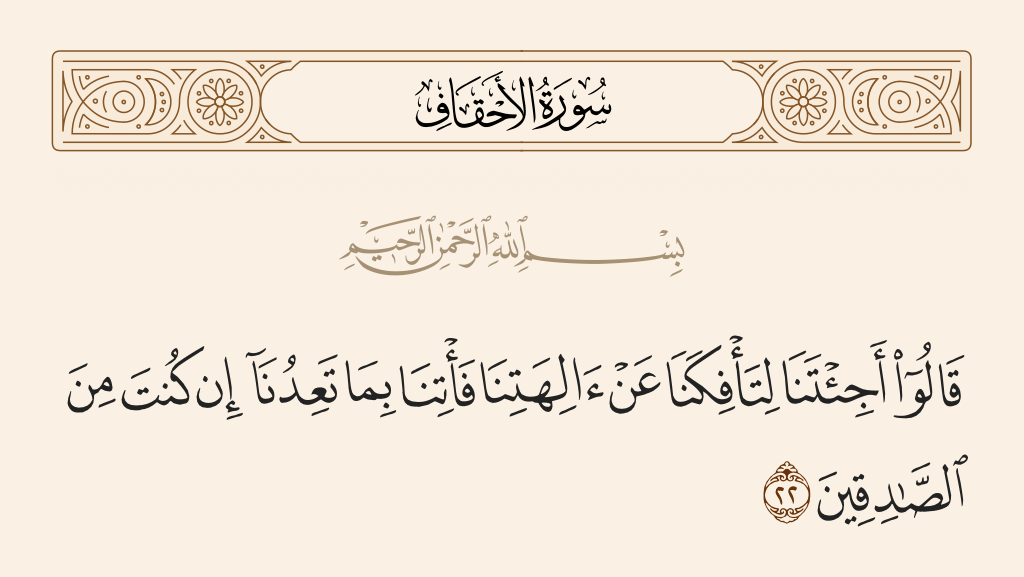 سُورَةُ الأَحْقَافِ
بِسْمِ ٱللَّهِ ٱلرَّحْمَٰنِ ٱلرَّحِيمِ
قَالُوٓا۟ أَجِئْتَنَا لِتَأْفِكَنَا عَنْ ءَالِهَتِنَا فَأْتِنَا بِمَا تَعِدُنَآ إِن كُنتَ مِنَ
ٱلصَّٰدِقِينَ ٢٢